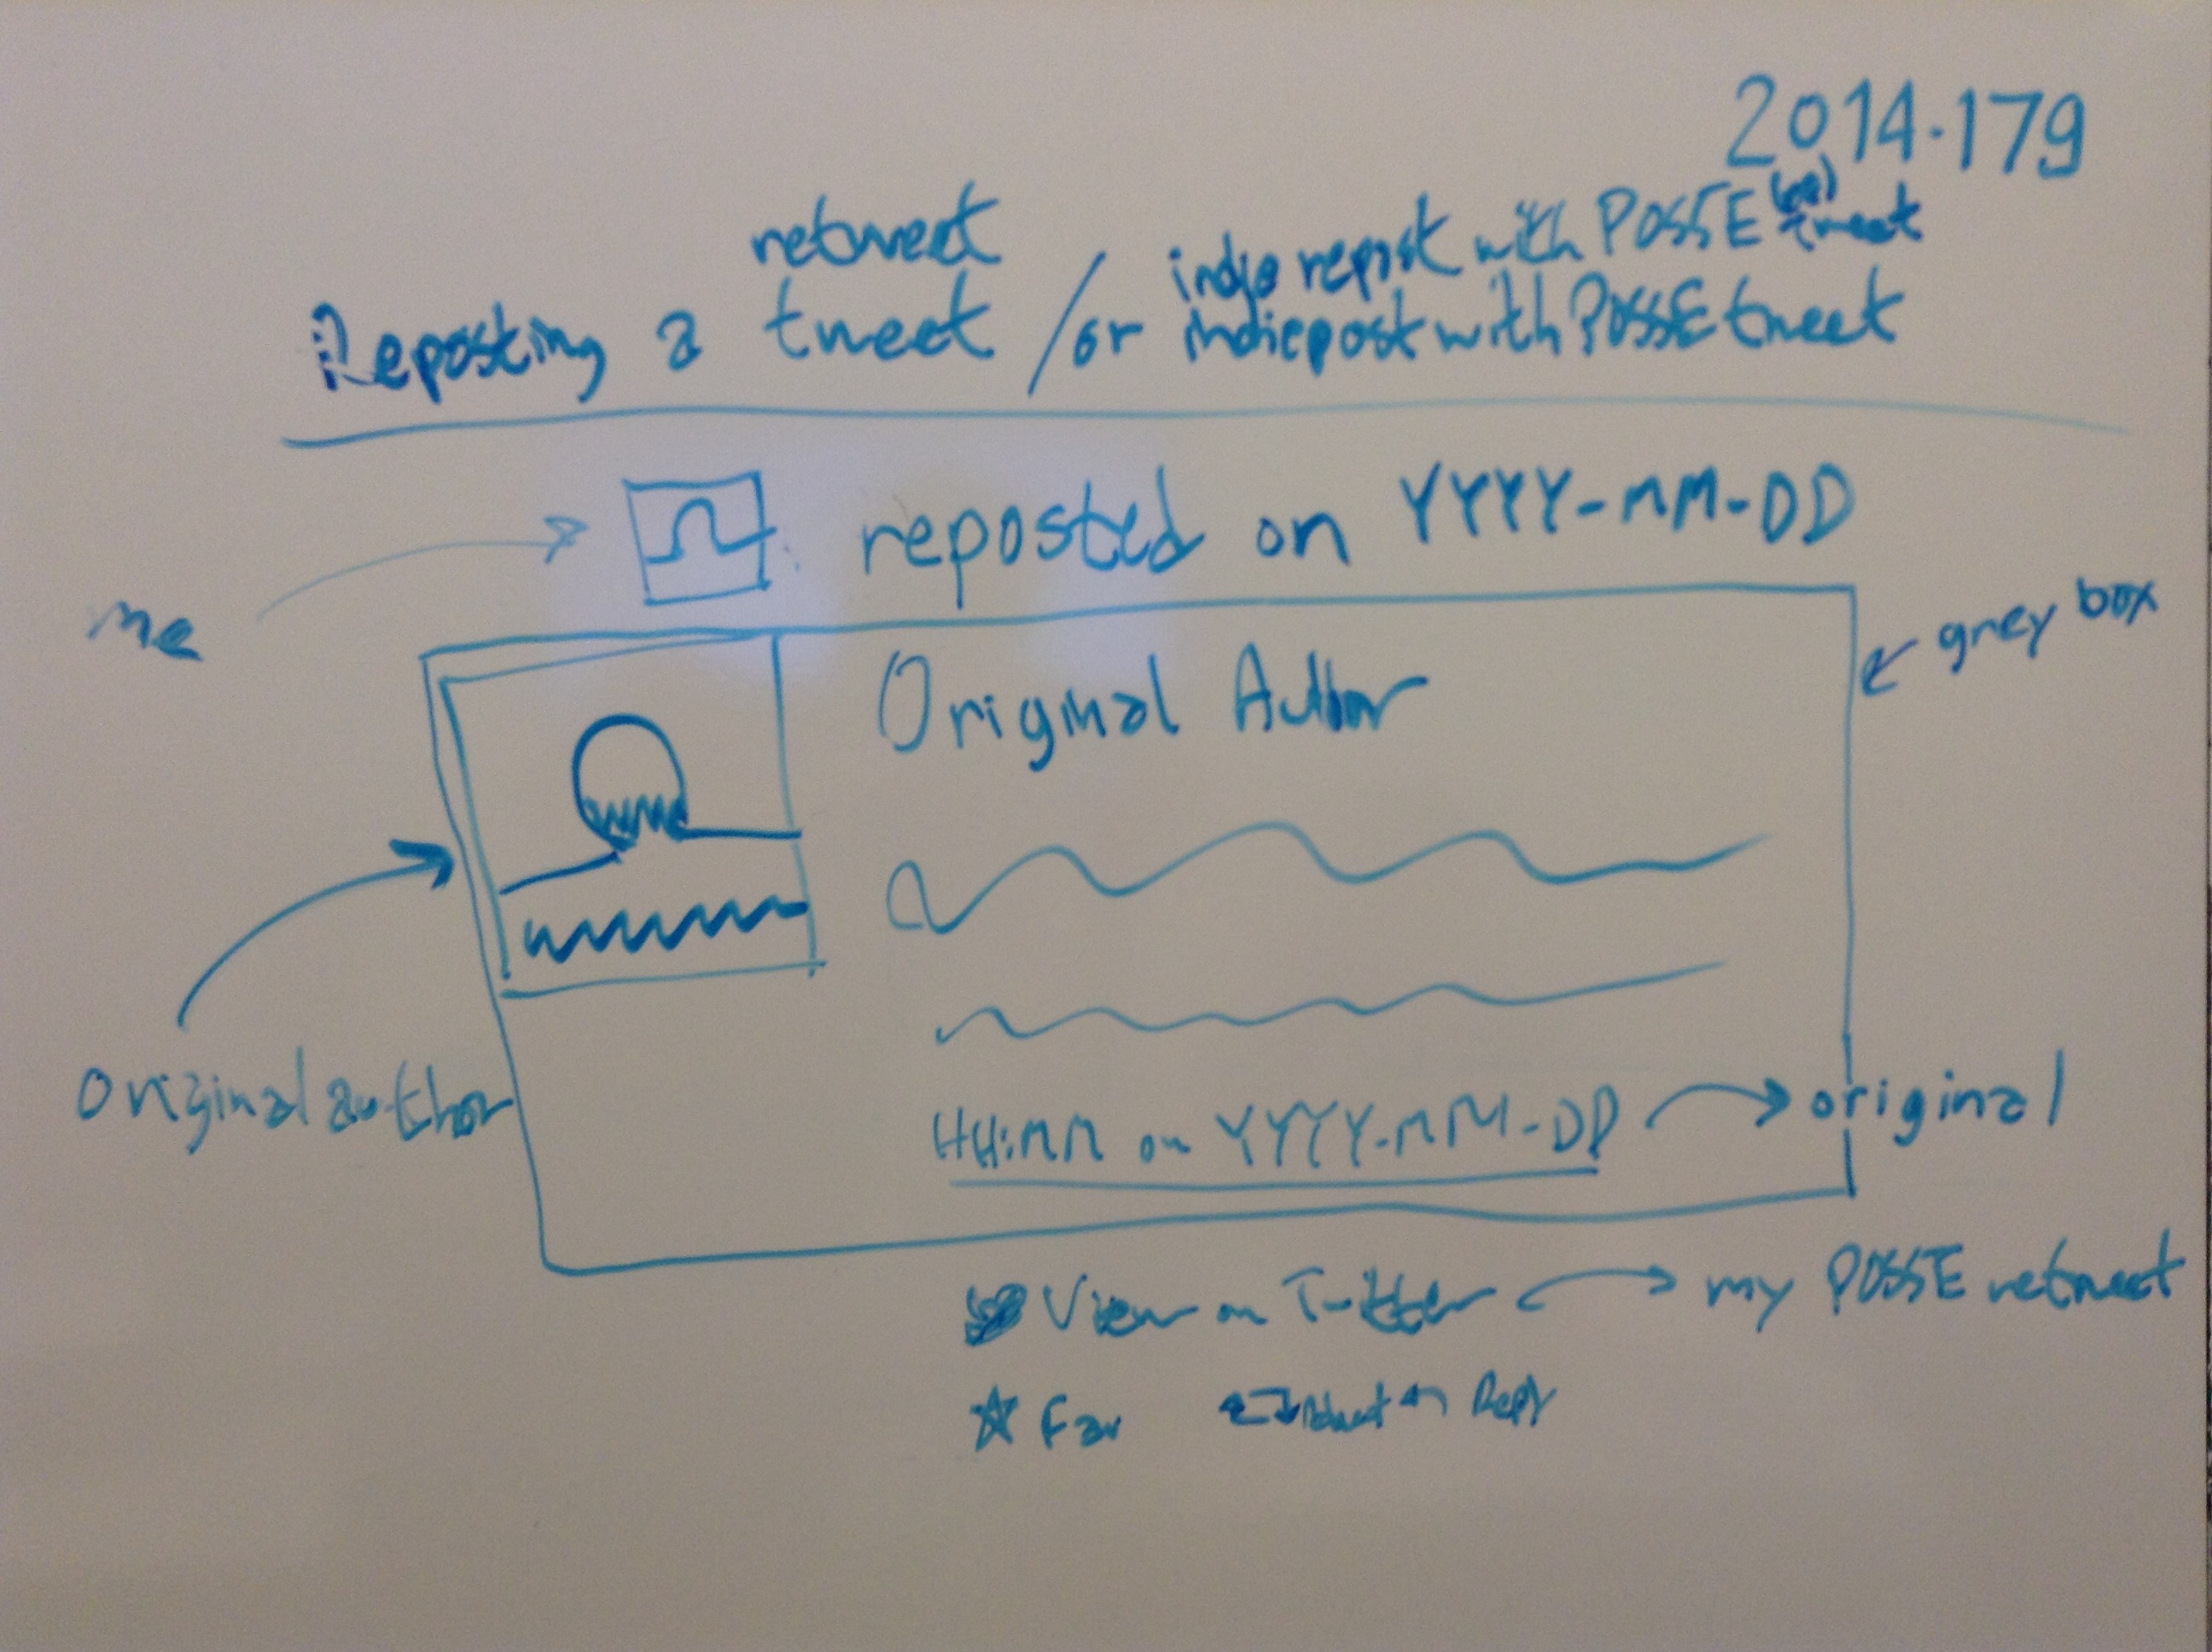 2014-179
retweet
indie repost with POSSE (re)tweet
Reposting a tweet / or indiepost with POSSE tweet
reposted on YYYY-MM-DD
me
grey box
Original Author
Original author
HH:MM on YYYY-MM-DD
original
View on Twitter
my POSSE retweet
Fav
Reply